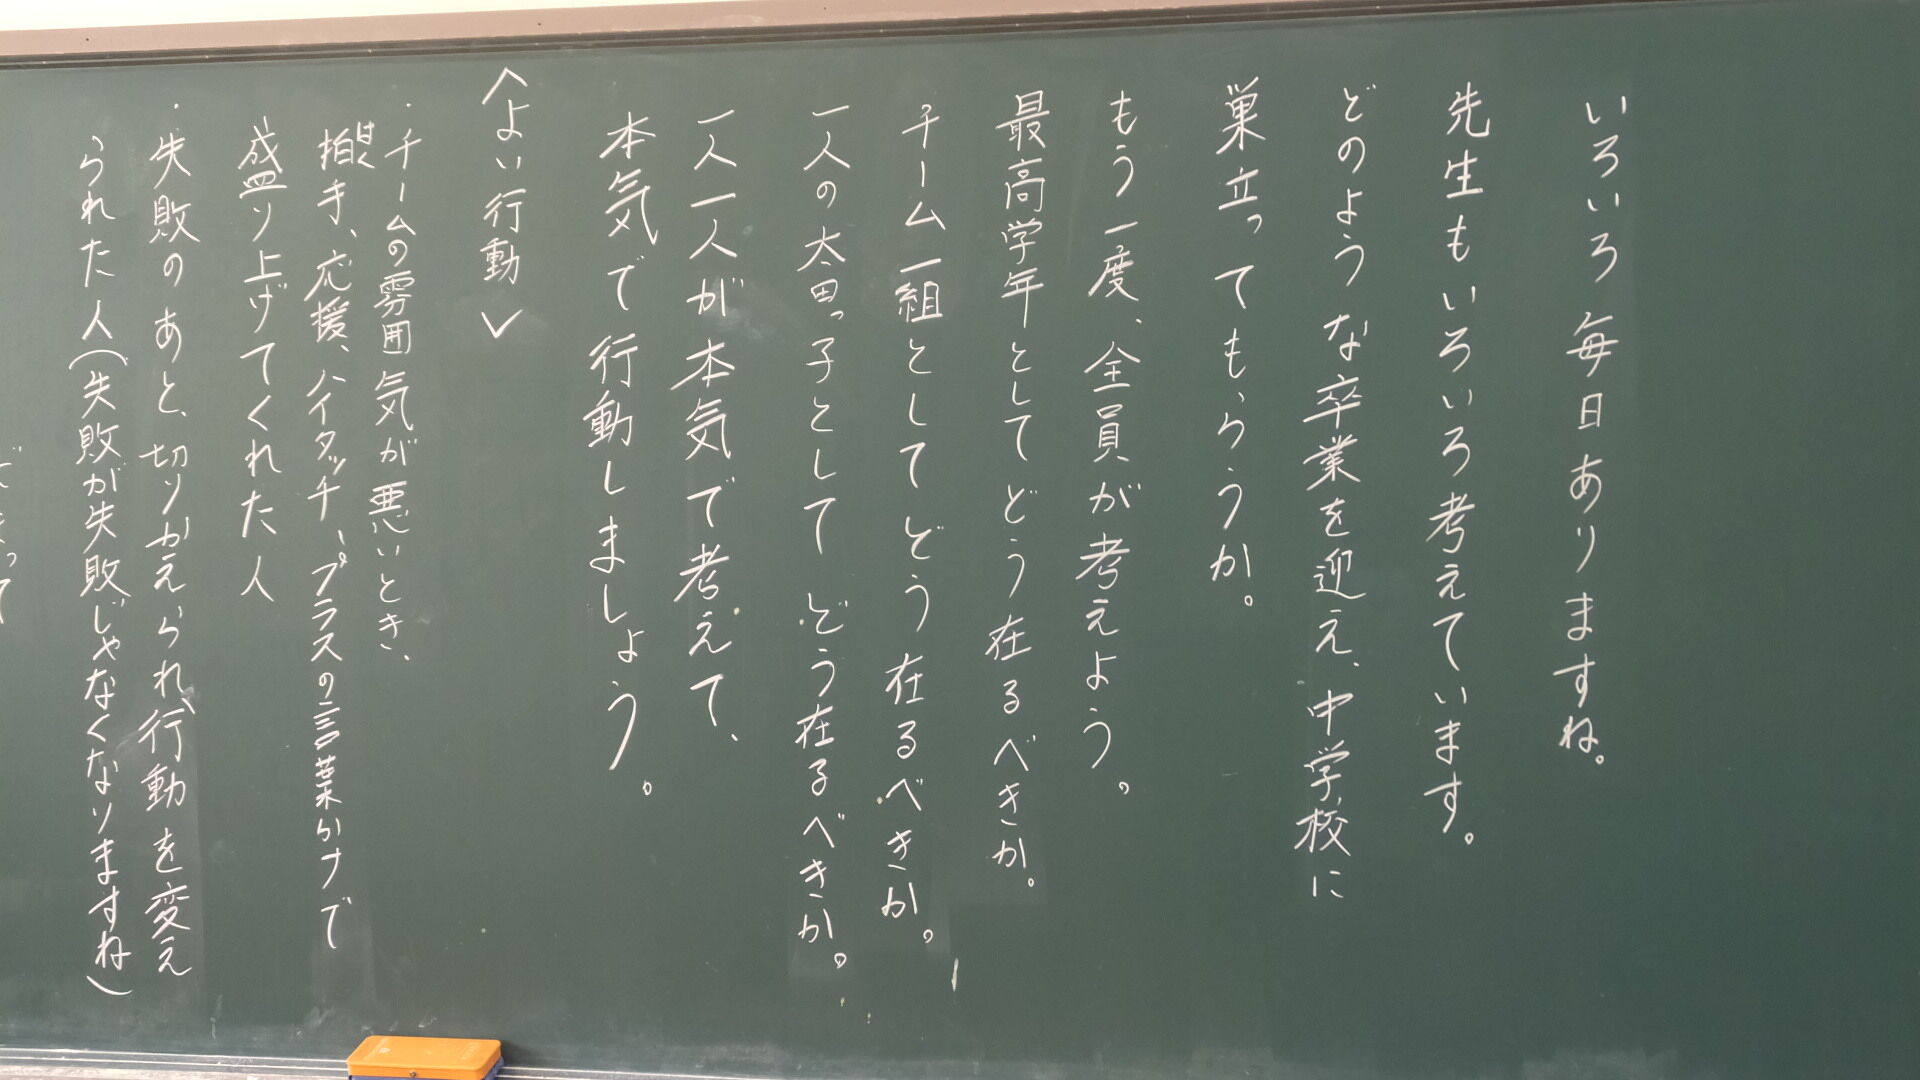 いろいろ毎日ありますね。
先生もいろいろ考えています。
どのような卒業を迎え、中学校に
巣立ってもらうか。
もう一度、全員が考えよう。
最高学年としてどう在るべきか。
チーム一組としてどう在るべきか。
一人の太田っ子としてどう在るべきか。
一人一人が本気で考えて、
本気で行動しましょう。
<よい行動>
・チームの雰囲気が悪いとき、
はく
拍手、応援、ハイタッチ、プラスの言葉かけで
盛り上げてくれた人
・失敗のあと、切りかえられ、行動を変え
られた人(失敗が失敗じゃなくなりますね)